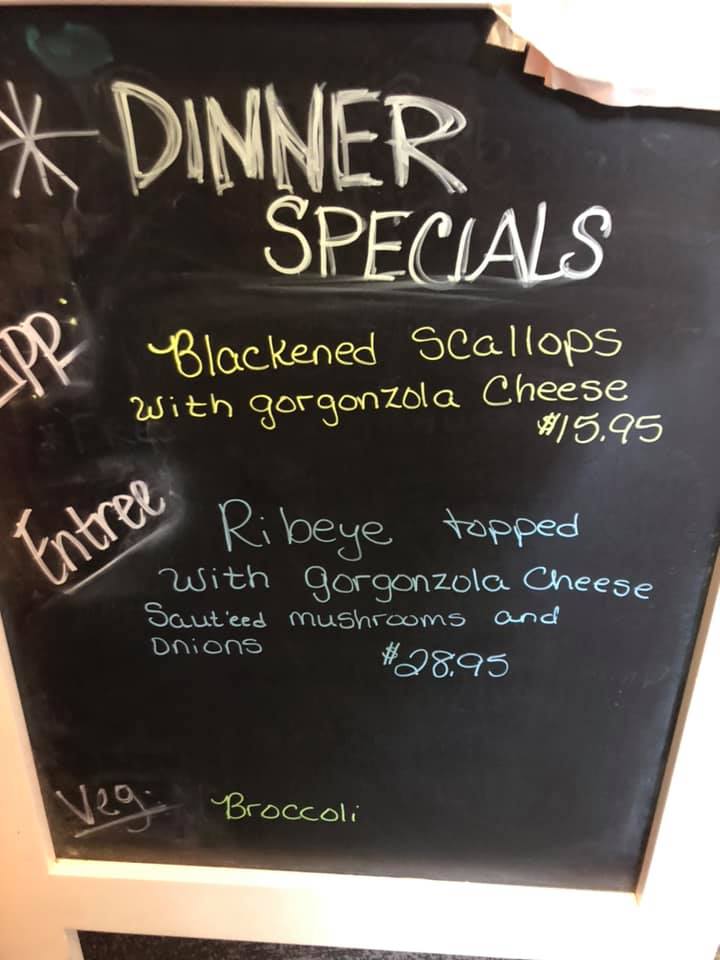 * DINNER
SPECIALS
APP:
Blackened Scallops
with gorgonzola Cheese
$15.95
Entree
Ribeye topped
with gorgonzola Cheese
Saut'eed mushrooms and
Onions $28.95
Veg: Broccoli